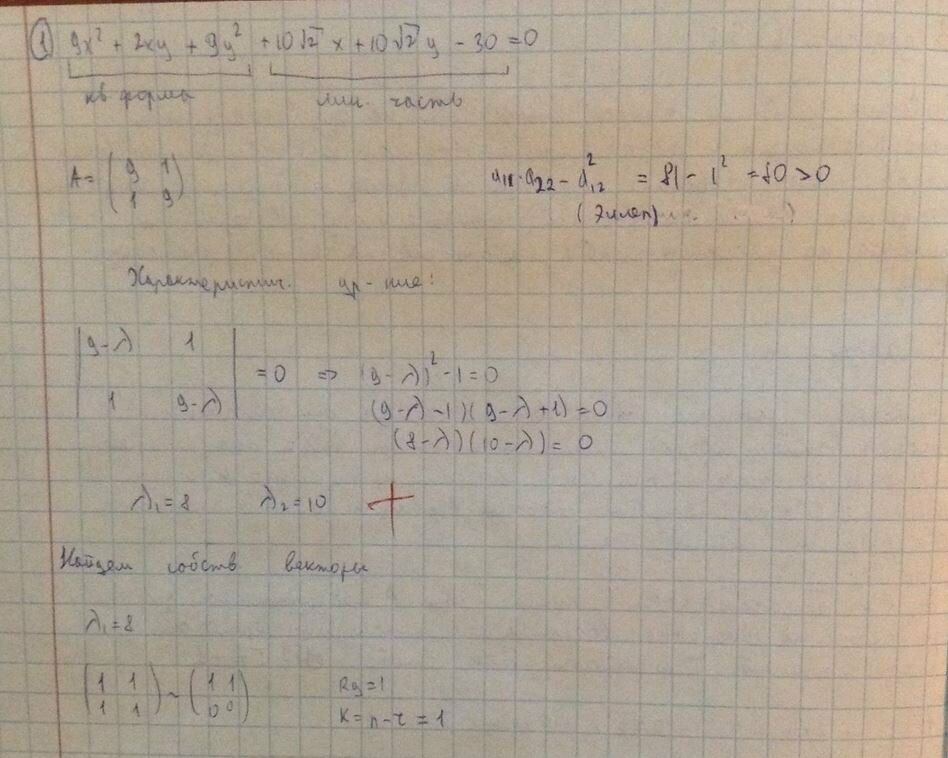 ① 9x² + 2xy + 9y² + 10√2 x + 10√2 y - 30 = 0
кв форма лин. часть
A = ( 9 1
1 9 )
a₁₁·a₂₂ - a₁₂² = 81 - 1² = 80 > 0
(Эллип)
Характеристич. ур-ние:
| 9-λ 1
1 9-λ | = 0 ⇒ (9-λ)² - 1 = 0
(9-λ-1)(9-λ+1) = 0
(8-λ)(10-λ) = 0
λ₁ = 8 λ₂ = 10 +
Найдем собств векторы
λ₁ = 8
( 1 1
1 1 ) ~ ( 1 1
0 0 )
Rg = 1
K = n - r = 1